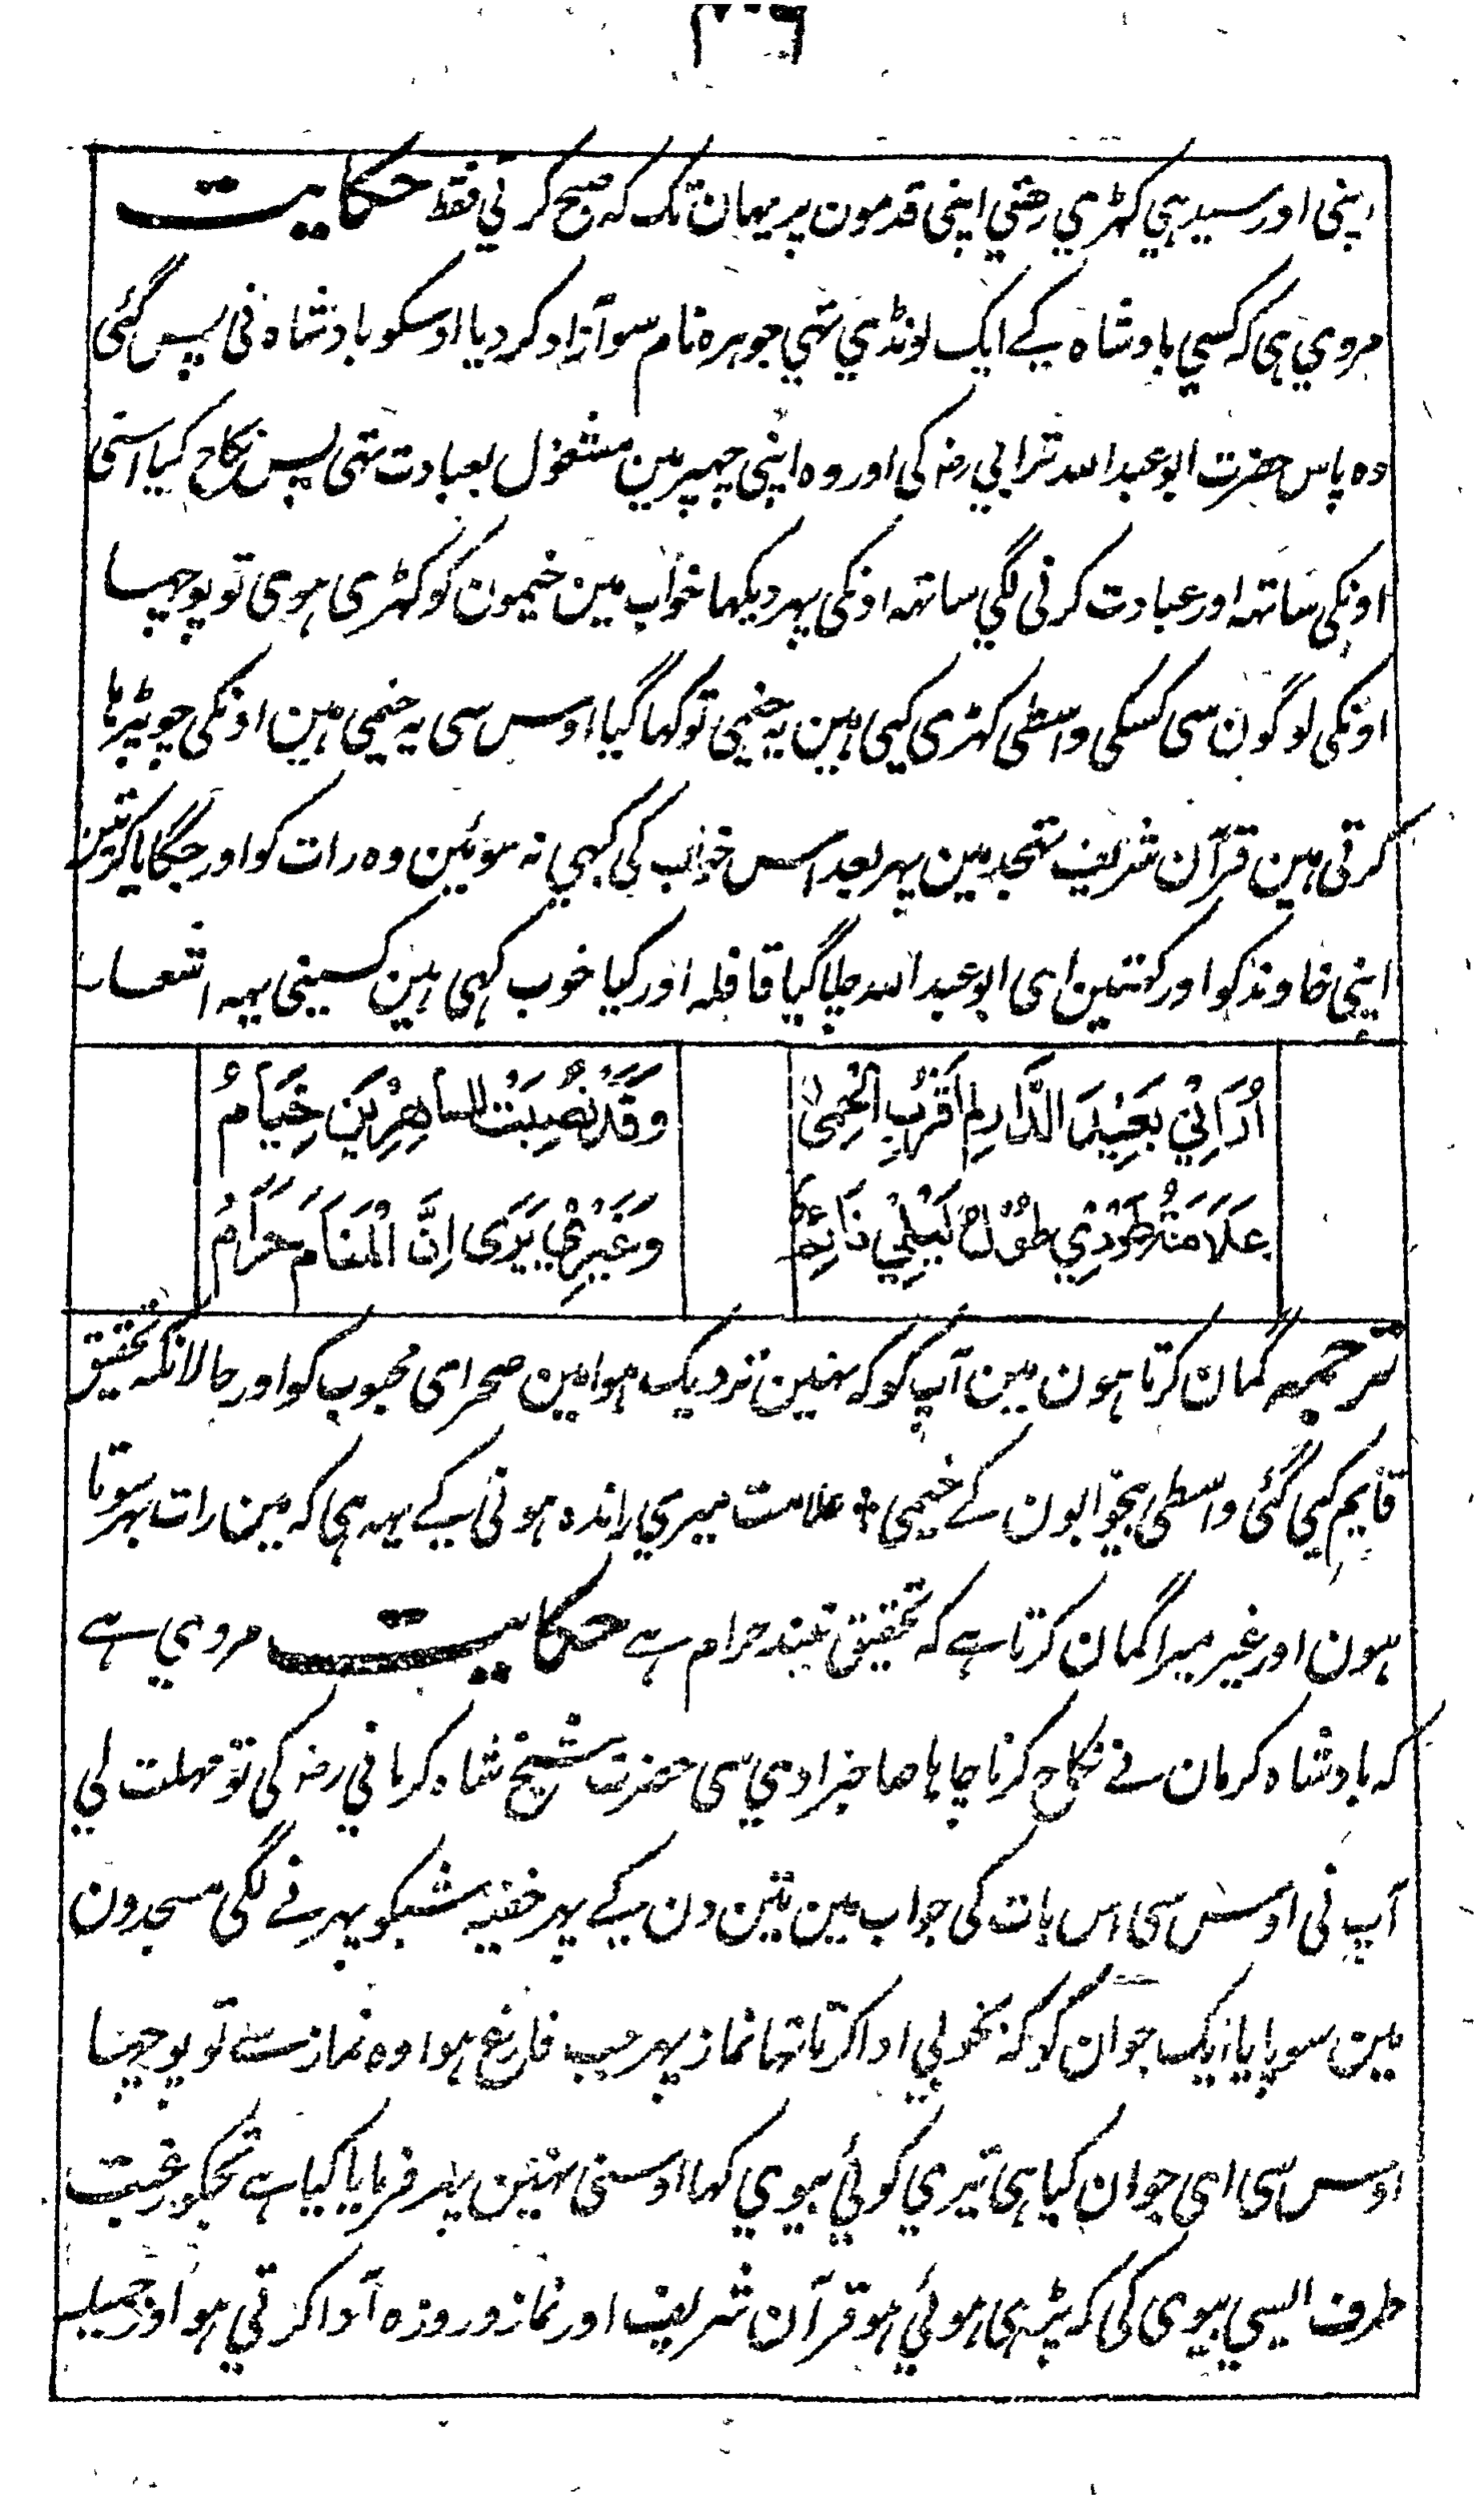 اپنی اور سیدہی کہڑي رہتي اپنی قدمون پر یہان تک کہ صبح کرتي فقط حکایت
مروي ہی کہ کسي بادشاہ کے ایک لونڈي تہي جوہرہ نام سو آزاد کردیا اوسکو بادشاہ نی پس گئی
وہ پاس حضرت ابو عبداللہ ترابي رضہ کی اور وہ اپنی چہپر مین مشغول بعبادت تہی پس نکاح کیا اسنی
اونکی ساتہہ اور عبادت کرنی لگي ساتہہ اونکی پہر دیکہا خواب مین خیمون کو کہڑی ہوی تو پوچہا
اونکی لوگون سی کسکی واسطی کہڑی کیی ہین یہ خیمی تو کہا گیا اوس سی یہ خیمی ہین اونکی جو پڑہا
کرتی ہین قرآن شریف تہجد مین پہر بعد اس خواب کی کبہي نہ سوئین وہ رات کو اور جگایا کرتین
اپنی خاوند کو اور کہتین ای ابو عبداللہ چلا گیا قافلہ اور کیا خوب کہی ہین کسینی یہہ اشعار
اُرَانِيْ بَعِيْدَ الدَّارِ لَمْ اَقْرَبِ الْحِمىٰ وَقَدْ نُصِبَتْ لِلسَاهِرِيْنَ خِيَامُ
عَلَامَةُ طَرْدِيْ طُوْلَ لَيْلِيْ نَائِمٌ وَغَيْرِيْ يَرَى اِنَّ الْمَنَامَ حَرَامُ
ترجمہ گمان کرتا ہون مین آپ کو کہ نہین نزدیک ہوا مین صحرای محبوب کو اور حالانکہ تحقیق
قایم کیی گئی واسطی بیخوابون کے خیمی ؞ علامت میري راندہ ہونی کے یہہ ہی کہ مین رات بہر سوتا
ہون اور غیر میرا گمان کرتا ہے کہ تحقیق نیند حرام ہے حکایت مروي ہے
کہ بادشاہ کرمان نے نکاح کرنا چاہا صاحبزادي سی حضرت شیخ شاہ کرماني رضہ کی تو مہلت لي
آپ نی اوس سی اس بات کی جواب مین تین دن کے پہر خفیہ شبکو پہرنے لگی مسجدون
مین سو پایا ایک جوان کو کہ بخوبي ادا کرتا تہا نماز پہر جب فارغ ہوا وہ نماز سے تو پوچہا
اوس سی ای جوان کیا ہی تیري کوئي بیوي کہا اوسنی نہین پہر فرمایا کیا ہے تجکو رغبت
طرف ایسي بیوی کی کہ پڑہی ہوئي ہو قرآن شریف اور نماز و روزہ ادا کرتي ہو اور جمیلہ